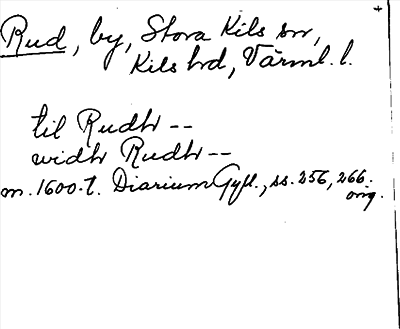 Rud, by, Stora Kils sn,
Kils hd, Värml. l.
til Rudh --
widh Rudh --
m. 1600-t. Diarium Gyll., ss. 256, 266.
orig.